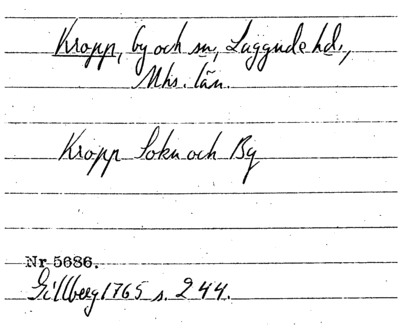 Kropp, by och sn, Luggude hd.,
Mhs. län.
Kropp Sokn och By
Nr 5686.
Gillberg 1765 s. 244.